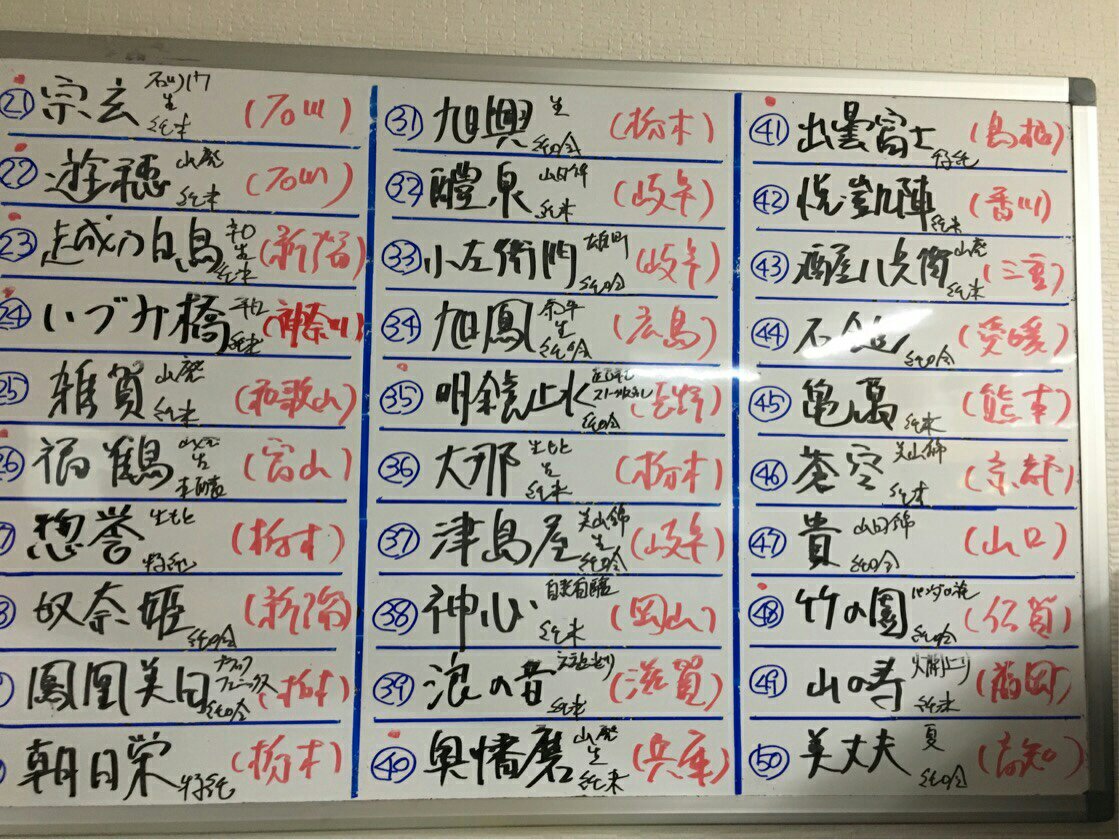 ㉑ 宗玄 石川門 生 純米 (石川)
㉒ 遊穂 山廃 純米 (石川)
㉓ 越の白鳥 辛口 生 純米 (新潟)
㉔ いづみ橋 辛口 純米 (神奈川)
㉕ 雑賀 山廃 純米 (和歌山)
㉖ 福鶴 生 (富山)
惣誉 生もと 特純 (栃木)
奴奈姫 純吟 (新潟)
鳳凰美田 ブラックフェニックス 純吟 (栃木)
朝日栄 特純 (栃木)
㉛ 旭興 生 純吟 (栃木)
㉜ 醴泉 山田錦 純米 (岐阜)
㉝ 小左衛門 雄町 純吟 (岐阜)
㉞ 旭鳳 生 純吟 (広島)
㉟ 明鏡止水 純吟 (長野)
㊱ 大那 生もと 生 純米 (栃木)
㊲ 津島屋 美山錦 生 純吟 (岐阜)
㊳ 神心 純米 (岡山)
㊴ 浪の音 純米 (滋賀)
㊵ 奥播磨 山廃 生 純米 (兵庫)
㊶ 出雲富士 特純 (島根)
㊷ 悦凱陣 純米 (香川)
㊸ 酒屋八兵衛 山廃 純米 (三重)
㊹ 石鎚 純吟 (愛媛)
㊺ 亀萬 純米 (熊本)
㊻ 蒼空 美山錦 純米 (京都)
㊼ 貴 山田錦 純吟 (山口)
㊽ 竹の園 純吟 (佐賀)
㊾ 山の寿 純米 (福岡)
㊿ 美丈夫 夏 純吟 (高知)